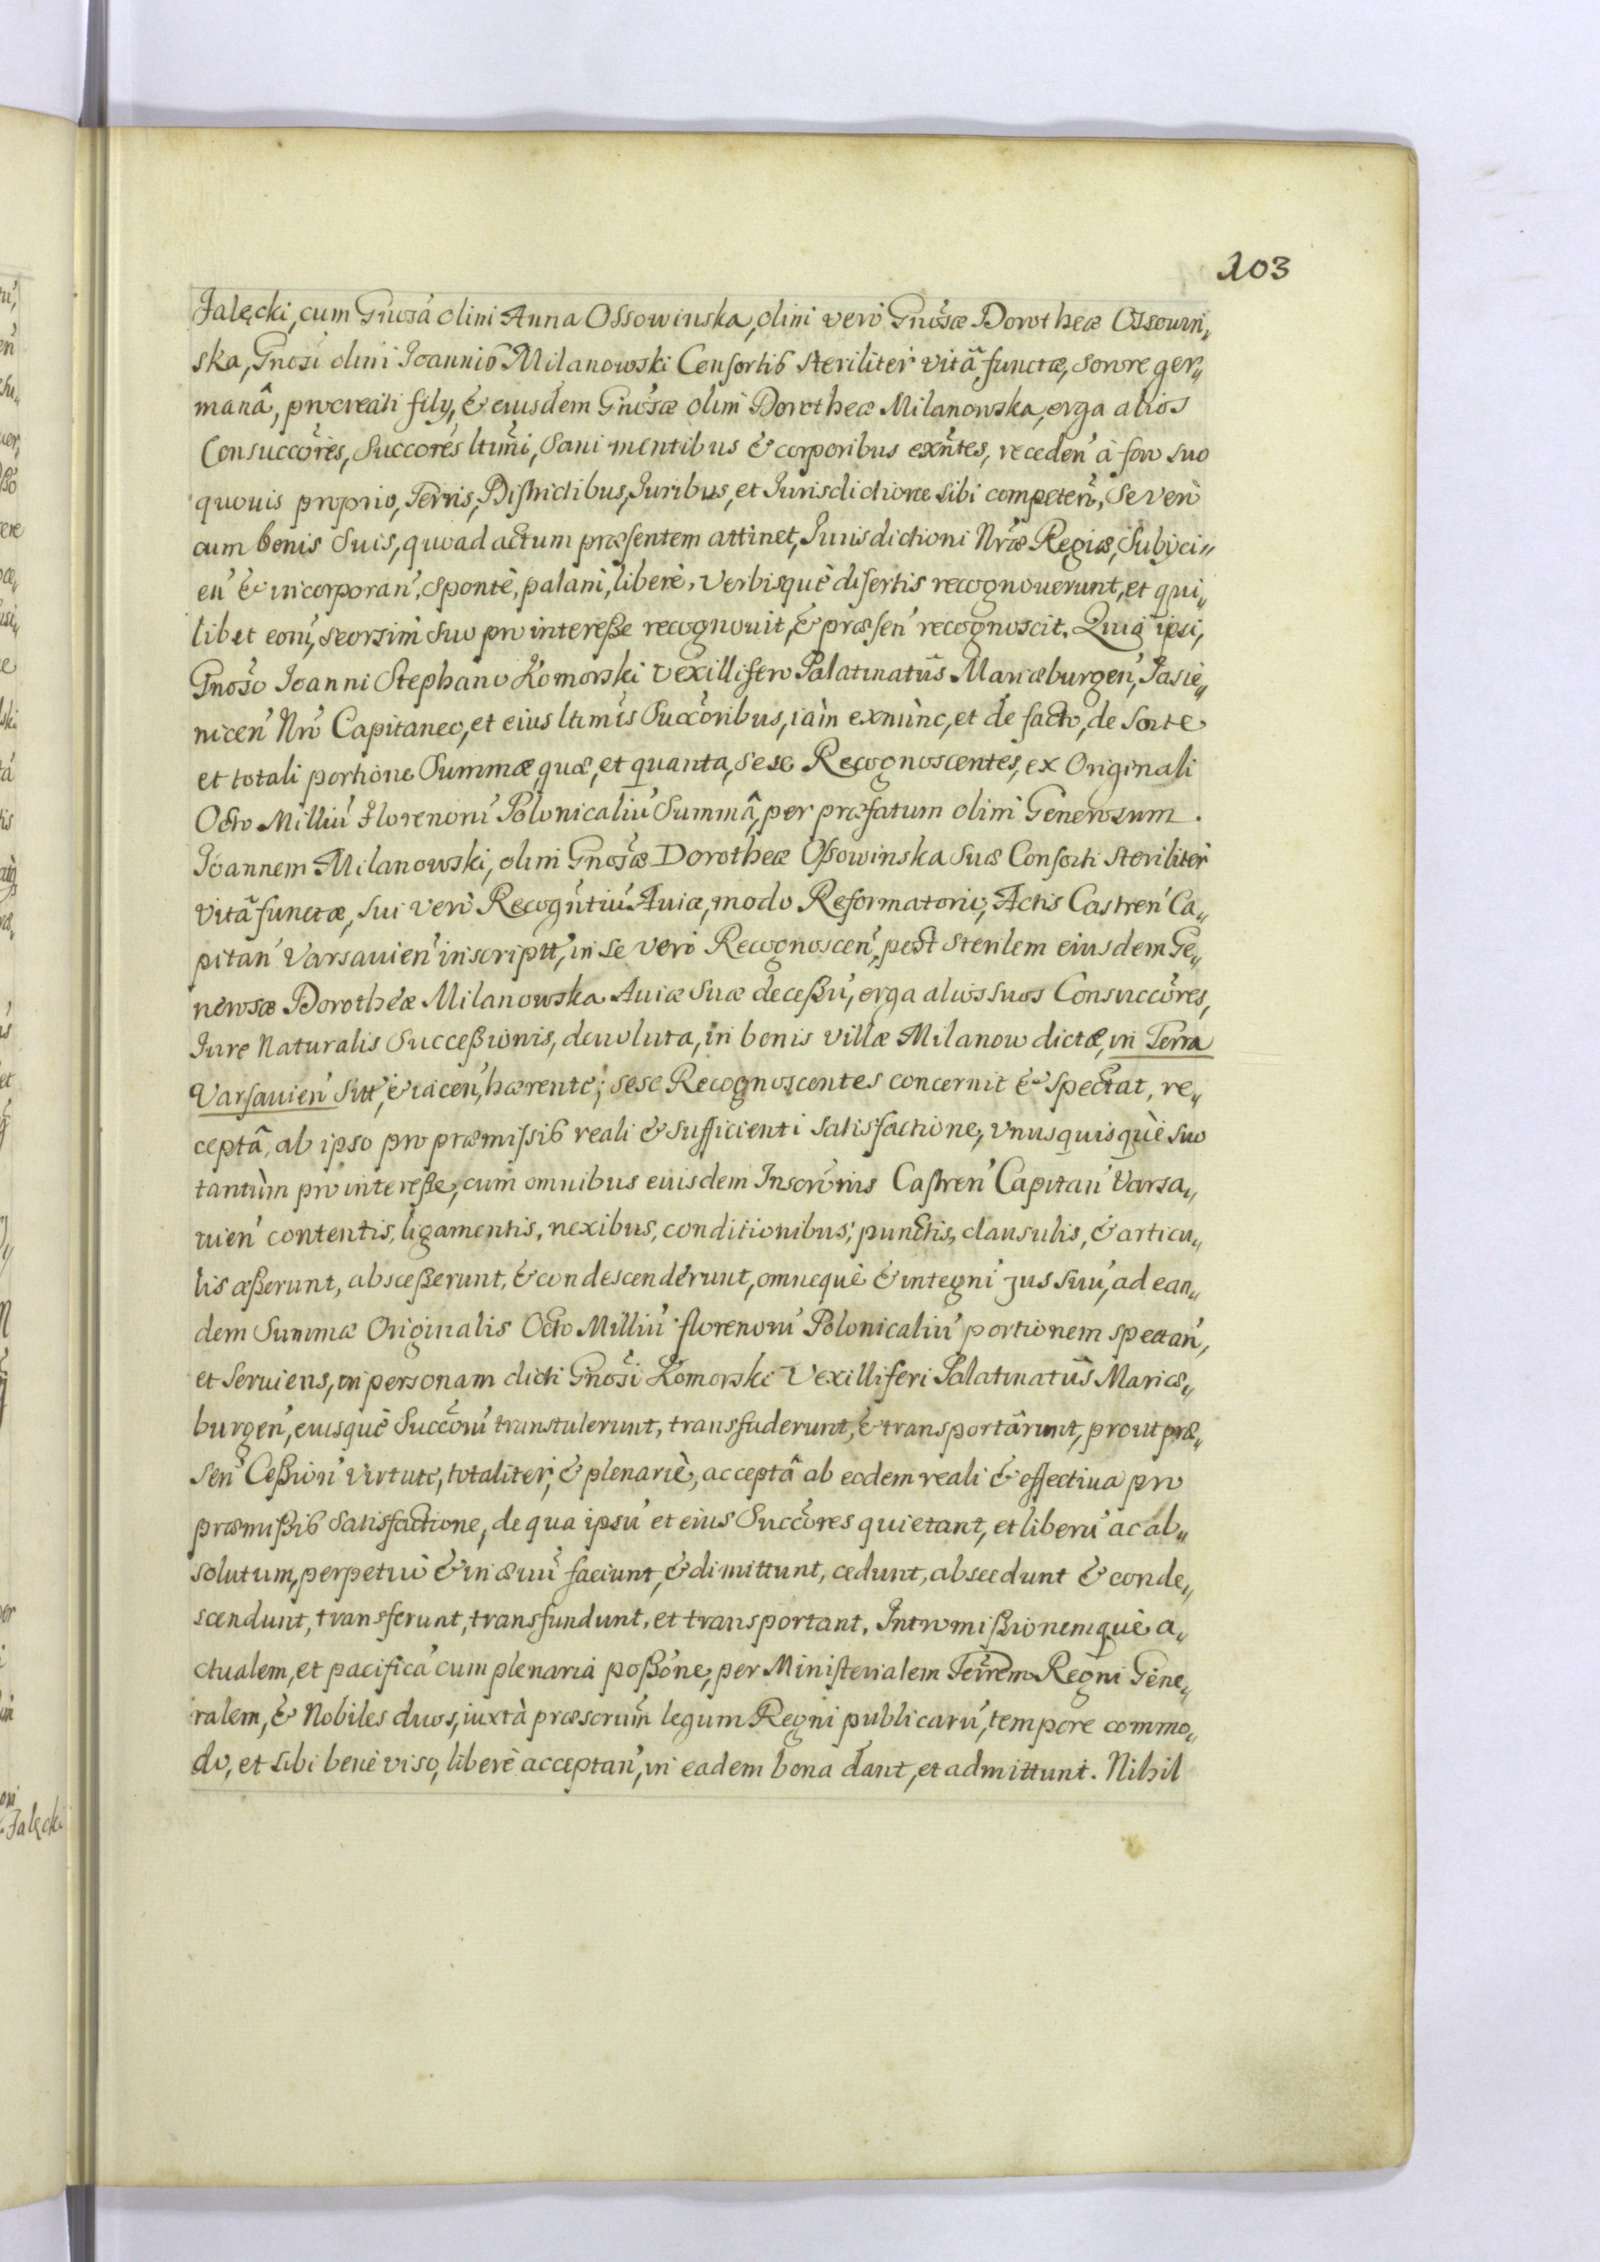 103
Jalęcki, cum Gnosa olim Anna Ossowinska, olim vero Gnosæ Dorotheæ Ossowin„
ska, Gnosi olim Ioannis Milanowski Consortis steriliter vitâ functæ, sorore ger„
manâ, procreati filÿ, & eiusdem Gnosæ olim Dorotheæ Milanowska, erga alios
Consuccores, Succores ltimi, Sani mentibus & corporibus exntes, receden' à foro suo
quouis proprio, Terris, Districtibus, Iuribus, et Iurisdictione sibi competen', Se vero
cum bonis Suis, quoad actum præsentem attinet, Iurisdictioni Nræ Regiæ, Subÿci„
en' & incorporan', Spontè, palam, liberè, Verbisquè disertis recognouerunt, et qui„
libet eorú, seorsim Suo pro interesse recognouit, & præsen' recognoscit. Quia ipsi,
Gnoso Ioanni Stephano Komorski Vexillifero Palatinatûs Mariæburgen', Jasie„
nicen' Nro Capitaneo, et eius ltimis Succoribus, iàm exnùnc, et de facto, de Sorte
et totali portione Summæ, quæ, et quanta, Sese Recognoscentes, ex Originali
Octo Milliú Florenorú Polonicaliú Summâ, per præfatum olim Generosum
Ioannem Milanowski, olim Gnosæ Dorotheæ Ossowinska Suæ Consorti Steriliter
vitâ functæ, sui vero Recogntiú Auiæ, modo Reformatorio, Actis Castren' Ca„
pitan' Varsauien' inscriptt', in se vero Recognoscen', post sterilem eiusdem Ge„
nerosæ Dorotheæ Milanowska Auiæ Suæ decessú, erga alios suos Consuccores,
Iure Naturalis Successionis, deuoluta, in bonis villæ Milanow dictæ, in Terra
Varsauien' sitt', & iacen', hærente; sese Recognoscentes concernit & spectat, re„
ceptâ, ab ipso pro præmissis reali & sufficienti satisfactione, vnusquisquè suo
tantùm pro interesse, cum omnibus eiusdem Inscronis Castren' Capitan' Varsa„
uien' contentis, ligamentis, nexibus, conditionibus, punctis, clausulis, & articu„
lis cesserunt, abscesserunt, & condescenderunt, omnequè & integrú jus suú, ad ean„
dem Summæ Originalis Octo Milliú florenorú Polonicaliú portionem spectan',
et seruiens, in personam dicti Gnosi Komorski Vexilliferi Palatinatûs Mariæ„
burgen', eiusquè Succorú transtulerunt, transfuderunt, & transportârunt, prout præ„
sen' Cession' virtute, totaliter, & plenariè, acceptâ ab eodem reali & effectiua pro
præmissis satisfactione, de qua ipsú et eius Succores quietant, et liberú ac ab„
solutum, perpetuò & in æuú faciunt, & dimittunt, cedunt, abscedunt & conde„
scendunt, transferunt, transfundunt, et transportant, Intromissionemquè a„
ctualem, et pacificá cum plenaria possone, per Ministerialem Terrem Regni Gene„
ralem, & Nobiles duos, iuxtà præscrum legum Regni publicarú, tempore commo„
do, et sibi benè viso, liberè acceptan', in eadem bona dant, et admittunt. Nihil
Jalęcki